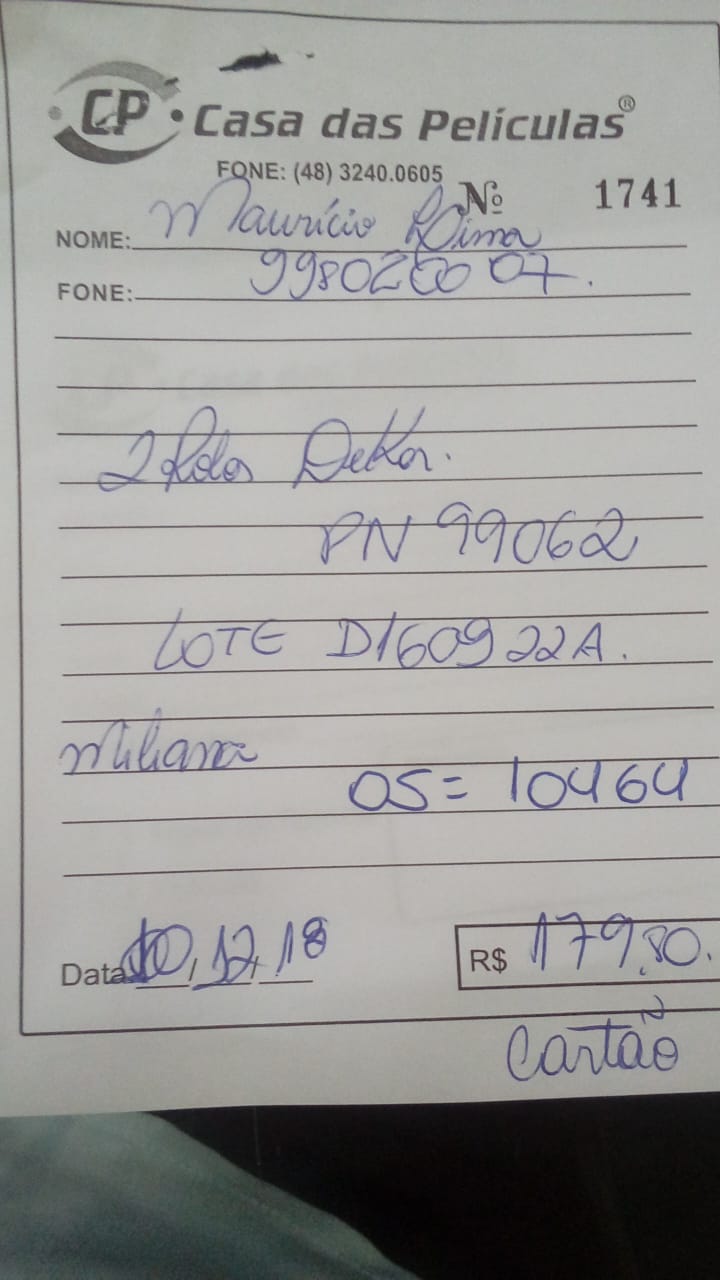 CP • Casa das Películas®
FONE: (48) 3240.0605
Nº 1741
NOME: Maurício Lima
FONE: 99802 07.
2 Rolos DeKor.
PN 99062
LOTE D160922A.
OS= 10464
Data 10, 12, 18
R$ 179,80.
Cartão